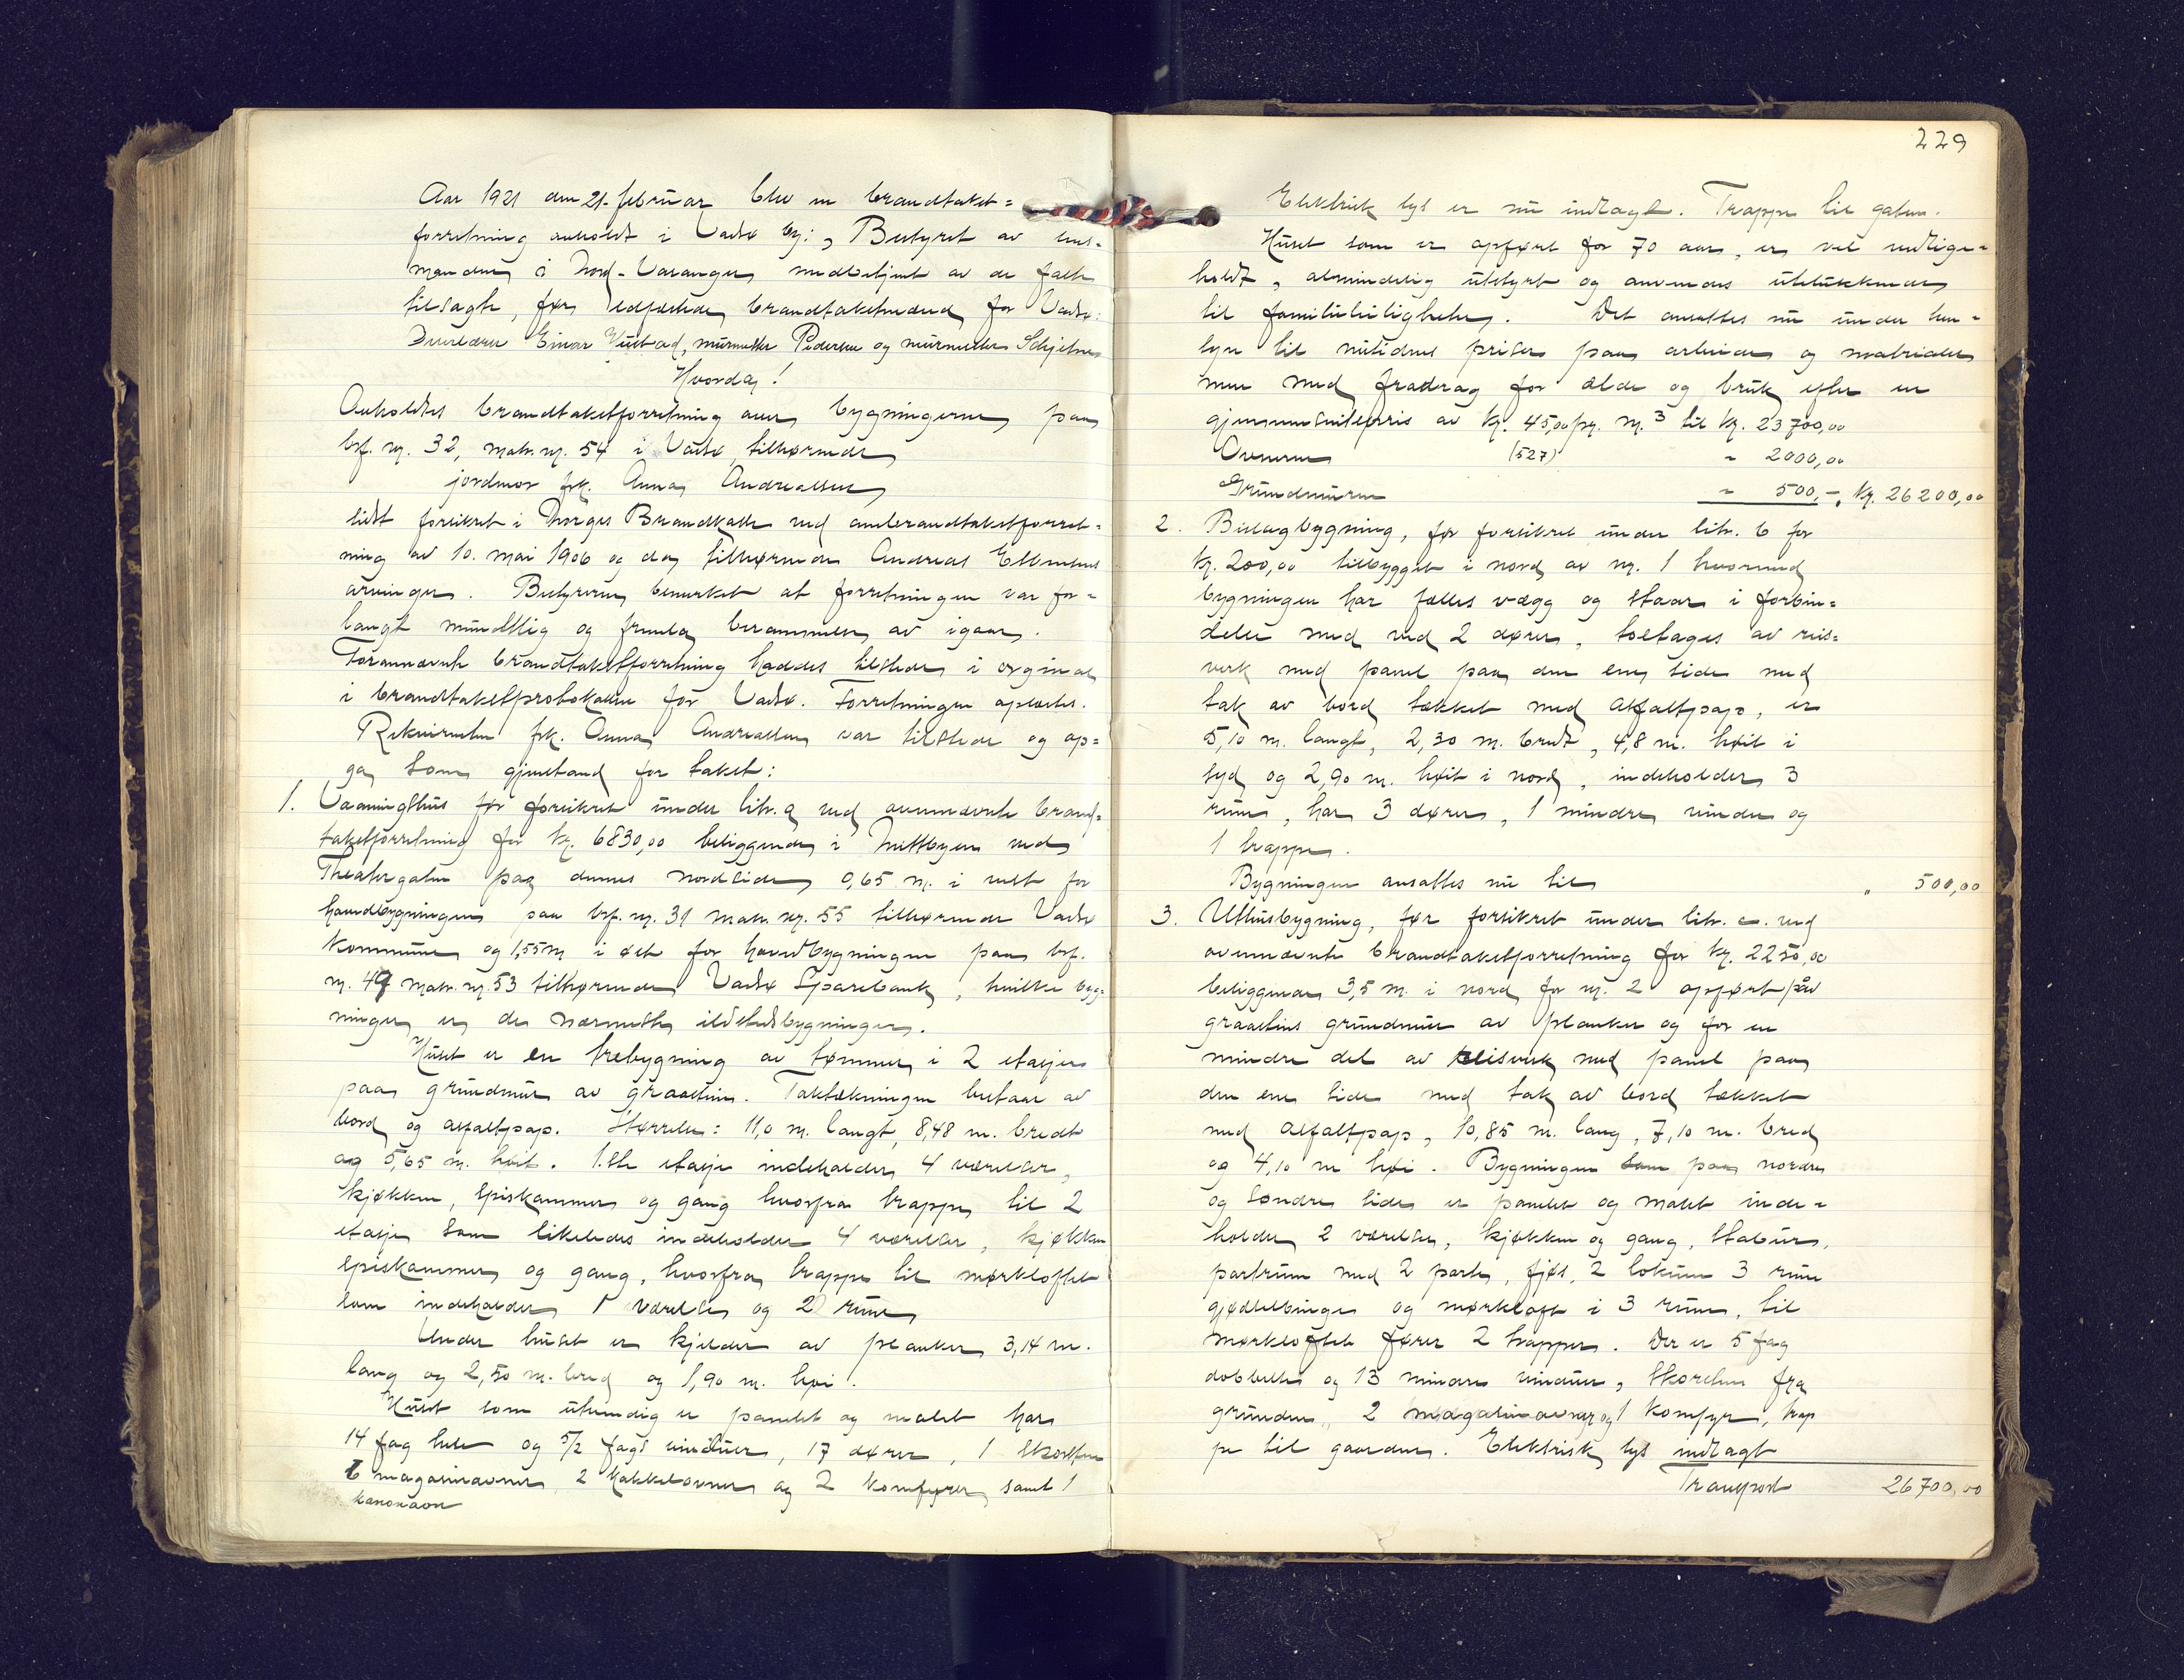 Aar 1921 den 21. februar blev en brandtakst=
forretning avholdt i Vadsø by: Bestyret av lens=
manden i Nord-Varanger medbetjent av de faste
tilsagte, før edfæstede brandtakstmænd for Vadsø:
Einar Vüstad, mürmester Pedersen og mürmester Schjelnes
Hvorda!
Avholdtes brandtakstforretning over bygningerne paa
brf. nr. 32, matr. nr. 54 i Vadsø tilhørende
jordmor frk. Anna Andreassen
sidst forsikret i Norges Brandkasse ved ombrandtakstforret=
ning av 10. mai 1906 og da tilhørende Andreas Esbensens
arvinger. Bestyreren bemerket at forretningen var for=
langt mündtlig og berammelse av igaar.
Forannævnte brandtakstforretning haddes tilstede i orginal
i brandtakstprotokollen for Vadsø. Forretningen oplæstes.
Rekvirenten frk. Anna Andreassen var tilstede og op=
ga som gjenstand for takst:
1. Vaaningshüs før forsikret ünder litr. a ved ovennævnte brand=
takstforretning for kr. 6830,00 beliggende i Midtbyen ved
Theatergaten paa dennes nordside, 0,65 m. i vest for
hovedbygningen paa brf. nr. 31 matr. nr. 55 tilhørende Vadsø
Kommüne og 1,55 m i øst for hovedbygningen paa brf.
nr. 47 matr. nr. 53 tilhørende Vadsø Sparebank, hvilke byg=
ninger er de nærmeste ildstedsbygninger.
Hüset er en træbygning av tømmer i 2 etasjer
paa gründmür av graasten. Taktækningen bestaar av
bord og asfaltpap. Størrelse: 11,0 m. langt, 8,48 m. bredt
og 5,65 m. høit. 1.ste etasje indeholder 4 værelser,
kjøkken, spiskammer og gang hvorfra trappe til 2
etasje som likeledes indeholder 4 værelser, kjøkken
spiskammer og gang, hvorfra trappe til mørkloftet
som indeholder 1 værelse og 2 rüm
Under hüset er kjelder av planker 3,14 m.
lang og 2,50 m. bred og 1,90 m. høi.
Hüset som ütvendig er panelet og malet har
14 fag hele og 5/2 fags vindüer, 17 dører, 1 skorsten
6 magasinovner 2 kakkelovner og 2 komfyrer, samt 1
kanonovn
229
Elektrisk lys er nü indlagt. Trappe til gaten.
Hüset som er opført for 70 aar, er vel vedlige=
holdt, almindelig ütstyrt og anvendes ütelükkende
til familieleiligheter. Det ansættes nü ünder hen=
syn til nütidens priser paa arbeide og materialer
men med fradrag for ælde og brük efter en
gjennemsnitspris av kr. 45,00 pr. m.3 til kr. 23700,00
Ovnerne (527) " 2000,00
Gründmüren " 500,- , kr. 26200,00
2. Bislagbygning, før forsikret ünder litr. b for
kr. 200,00 tilbygget i nord av nr. 1 hvormed
bygningen har fælles vægg og staar i forbin=
delse med ved 2 dører, av reis=
verk med panel paa den ene side med
tak av bord tækket med asfaltpap, er
5,10 m. langt, 2,30 m. bredt, 4,8 m. høit i
syd og 2,90 m. høit i nord, indeholder 3
rüm, har 3 dører, 1 mindre vindü og
1 trappe.
Bygningen ansættes nü til " 500,00
3. Uthüsbygning, før forsikret ünder litr. c. ved
ovennævnte brandtakstforretning for kr. 2250,00
beliggende 3,5 m. i nord for nr. 2 opført paa
graastens gründmür av planker og for en
mindre del av reisverk med panel paa
den ene side med tak av bord tækket
med asfaltpap, 10,85 m. lang, 7,10 m. bred
og 4,10 m høi. Bygningen som paa nordre
og søndre side er panelet og malet inde=
holder 2 værelser, kjøkken og gang, stabür,
partrüm med 2 parter, fjøs, 2 loküm 3 rüm
gjødselbinger og mørkloft i 3 rüm, til
mørkloftet fører 2 trapper. Der er 5 fag
dobbelte og 13 mindre vindüer, skorsten fra
gründen, 2 magasinovner og 1 komfyr, trap
pe til gaarden. Elektrisk lys indlagt
Transport 26700,00